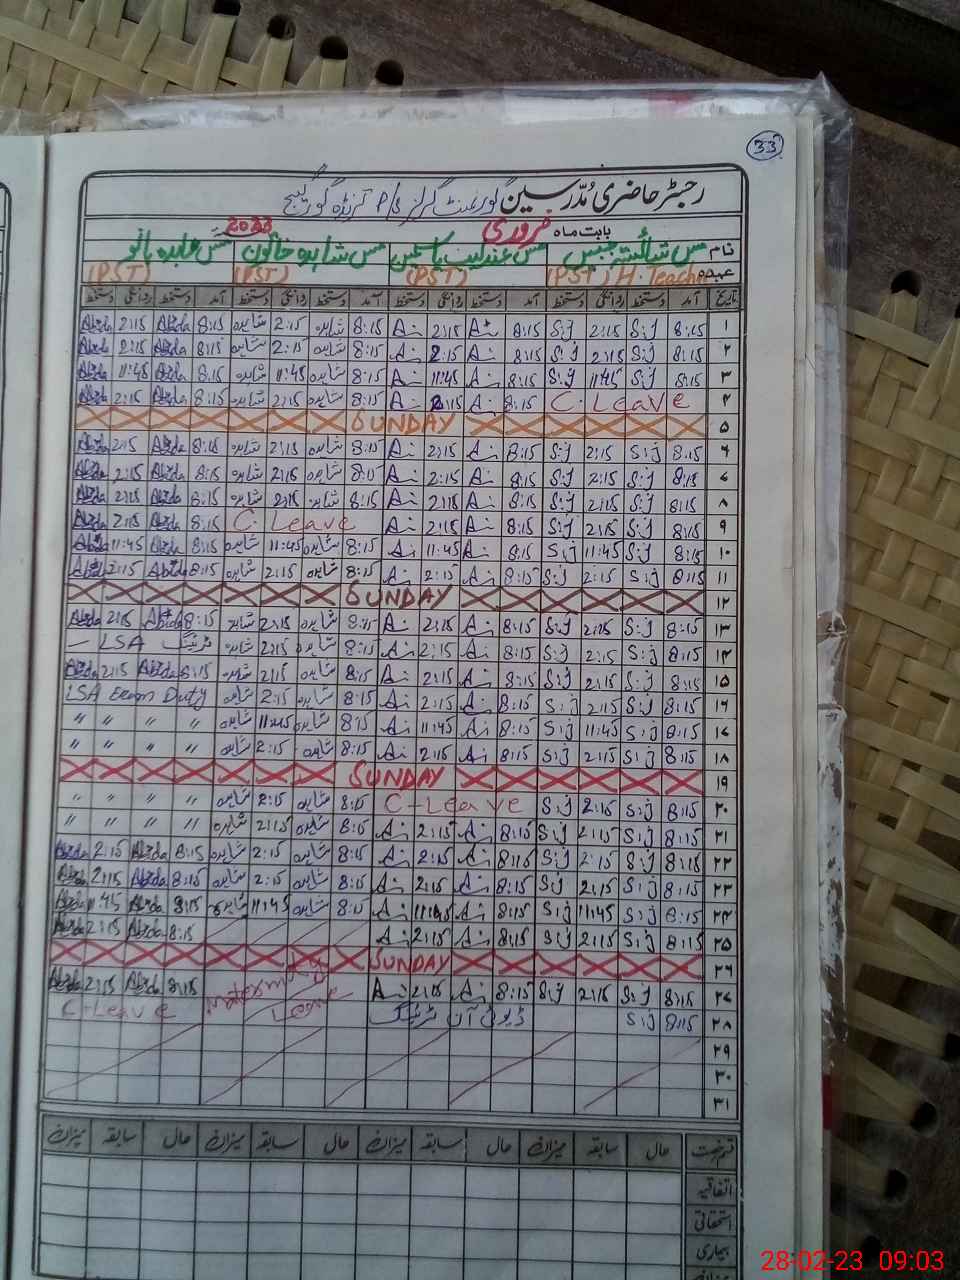 33
رجسٹر حاضری مُدّرسین گورنمنٹ گرلز P/S
بابت ماہ فروری 2023
نام مس شائستہ جبیں مس عندلیب یاسمین مس شاہدہ خاتون مس عابدہ بانو
عہدہ (PST) H.Teacher (PST) (PST) (PST)
تاریخ آمد دستخط روانگی دستخط آمد دستخط روانگی دستخط آمد دستخط روانگی دستخط آمد دستخط روانگی دستخط
۱ 8:15 S.J 2:15 S.J 8:15 2:15 8:15 شاہدہ 2:15 شاہدہ 8:15 Abida 2:15 Abida
۲ 8:15 S.J 2:15 S.J 8:15 2:15 8:15 شاہدہ 2:15 شاہدہ 8:15 Abida 2:15 Abida
۳ 8:15 S.J 11:45 S.J 8:15 11:45 8:15 شاہدہ 11:45 شاہدہ 8:15 Abida 11:45 Abida
۴ C.Leave 8:15 2:15 8:15 شاہدہ 2:15 شاہدہ 8:15 Abida 2:15 Abida
۵ SUNDAY
۶ 8:15 S.J 2:15 S.J 8:15 2:15 8:15 شاہدہ 2:15 شاہدہ 8:15 Abida 2:15 Abida
۷ 8:15 S.J 2:15 S.J 8:15 2:15 8:15 شاہدہ 2:15 شاہدہ 8:15 Abida 2:15 Abida
۸ 8:15 S.J 2:15 S.J 8:15 2:15 8:15 شاہدہ 2:15 شاہدہ 8:15 Abida 2:15 Abida
۹ 8:15 S.J 2:15 S.J 8:15 2:15 C.Leave 8:15 Abida 2:15 Abida
۱۰ 8:15 S.J 11:45 S.J 8:15 11:45 8:15 شاہدہ 11:45 شاہدہ 8:15 Abida 11:45 Abida
۱۱ 8:15 S.J 2:15 S.J 8:15 2:15 8:15 شاہدہ 2:15 شاہدہ 8:15 Abida 2:15 Abida
۱۲ SUNDAY
۱۳ 8:15 S.J 2:15 S.J 8:15 2:15 8:15 شاہدہ 2:15 شاہدہ 8:15 Abida 2:15 Abida
۱۴ 8:15 S.J 2:15 S.J 8:15 2:15 8:15 شاہدہ 2:15 شاہدہ LSA ٹریننگ
۱۵ 8:15 S.J 2:15 S.J 8:15 2:15 8:15 شاہدہ 2:15 شاہدہ 8:15 Abida 2:15 Abida
۱۶ 8:15 S.J 2:15 S.J 8:15 2:15 8:15 شاہدہ 2:15 شاہدہ LSA Exam Duty
۱۷ 8:15 S.J 11:45 S.J 8:15 11:45 8:15 شاہدہ 11:45 شاہدہ " " " "
۱۸ 8:15 S.J 2:15 S.J 8:15 2:15 8:15 شاہدہ 2:15 شاہدہ " " " "
۱۹ SUNDAY
۲۰ 8:15 S.J 2:15 S.J C-Leave 8:15 شاہدہ 2:15 شاہدہ " " " "
۲۱ 8:15 S.J 2:15 S.J 8:15 2:15 8:15 شاہدہ 2:15 شاہدہ " " " "
۲۲ 8:15 S.J 2:15 S.J 8:15 2:15 8:15 شاہدہ 2:15 شاہدہ 8:15 Abida 2:15 Abida
۲۳ 8:15 S.J 2:15 S.J 8:15 2:15 8:15 شاہدہ 2:15 شاہدہ 8:15 Abida 2:15 Abida
۲۴ 8:15 S.J 11:45 S.J 8:15 11:45 8:15 شاہدہ 11:45 شاہدہ 8:15 Abida 11:45 Abida
۲۵ 8:15 S.J 2:15 S.J 8:15 2:15 8:15 Abida 2:15 Abida
۲۶ SUNDAY
۲۷ 8:15 S.J 2:15 S.J 8:15 2:15 Maternity Leave 8:15 Abida 2:15 Abida
۲۸ 8:15 S.J ڈیوٹی آن ٹریننگ C-Leave
۲۹
۳۰
۳۱
قسم رخصت حال سابقہ میزان حال سابقہ میزان حال سابقہ میزان حال سابقہ میزان
اتفاقیہ
استحقاقی
بیماری
28-02-23 09:03